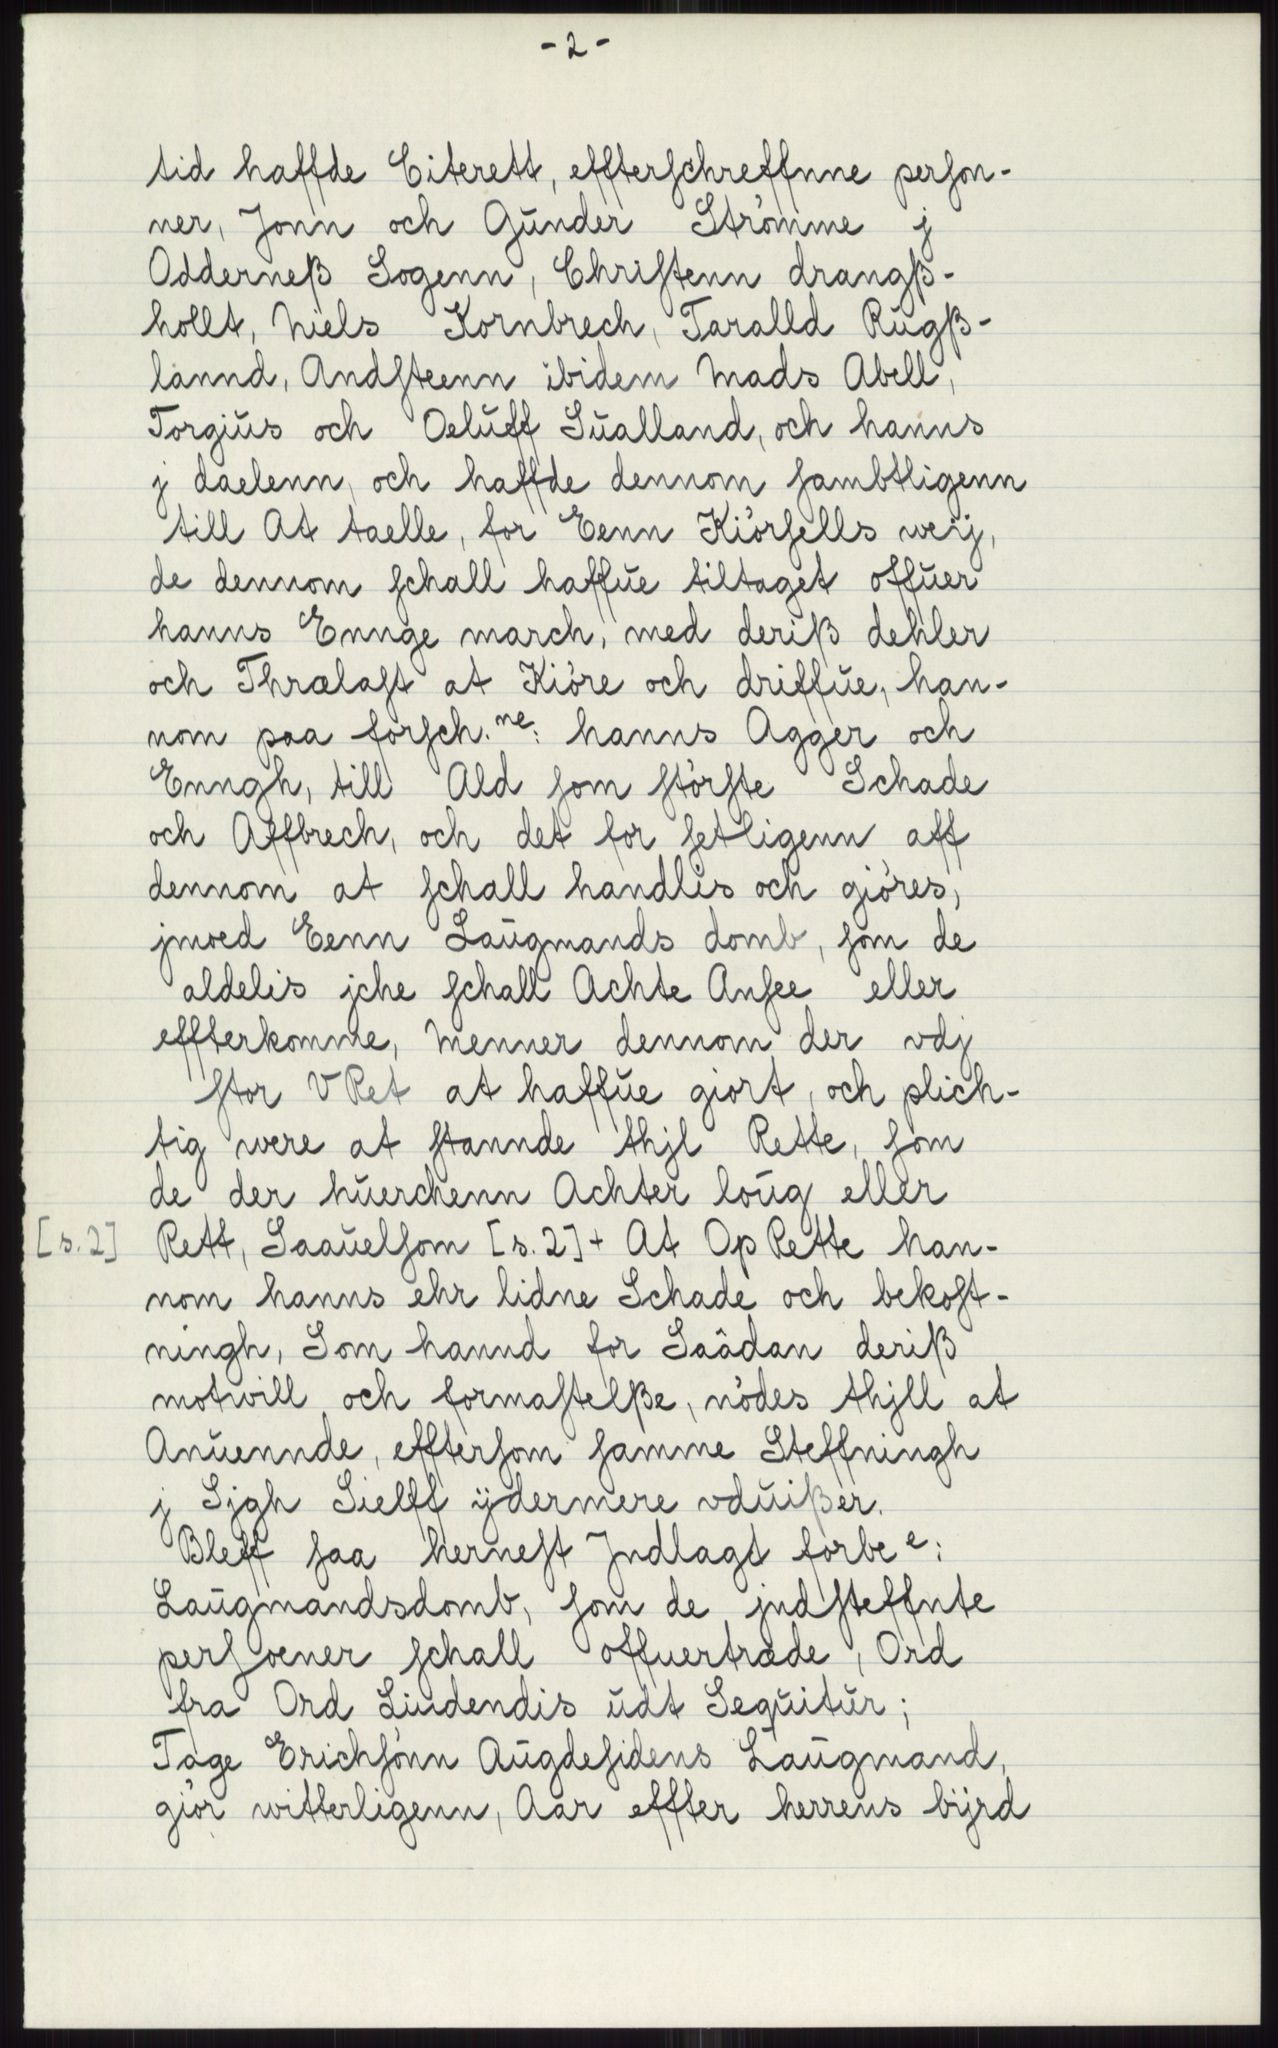 - 2 -
tid haffde Citerett, effterschreffnne person-
ner, Jonn och Gŭnder Strömme j
Odderneß Sogenn, Christenn drangß-
hollt, Niels Kornbrech, Taralld Rŭgß-
lannd, Andsteenn ibidem Mads Abell,
Torgiŭs och Oelŭff Sŭalland, och hanns
j daelenn, och haffde dennom sambtligenn
till At taelle, for Eenn Kiörsells weÿ,
de dennom schall haffŭe tiltaget offŭer
hanns Ennge march, med deriß dehler
och Thrælast at Kiöre och driffŭe, han-
nom paa forsch.ne: hanns Agger och
Enngh, till Ald som störste Schade
och Affbrech, och det for setligenn aff
dennom at schall handlis och giöres,
jmoed Eenn Laŭgmands domb, som de
aldelis jche schall Achte Ansee eller
effterkomme, Menner dennom der vdj
stor V Ret at haffŭe giort, och plich-
tig were at stannde thjl Rette, som
de der hŭerchenn Achter loŭg eller
[s. 2] Rett, Saaŭelsom [s. 2] + At Op Rette han-
nom hanns ehr lidne Schade och bekost-
ningh, Som hannd for Saâdan deriß
motwill och formastelße, nödes thjll at
Anŭennde, efftersom samme Steffningh
j Sjgh Sielff ÿdermere vdŭißer.
Bleff saa hernest Jndlagt forbe e:
Laŭgmandsdomb, som de jndsteffnte
persoener schall offuertræde, Ord
fra Ord Liudendis ŭdt Seqŭitŭr;
Tage Erichsönn Aŭgdesidens Laŭgmand,
giör witterligenn, Aar effter herrens bijrd